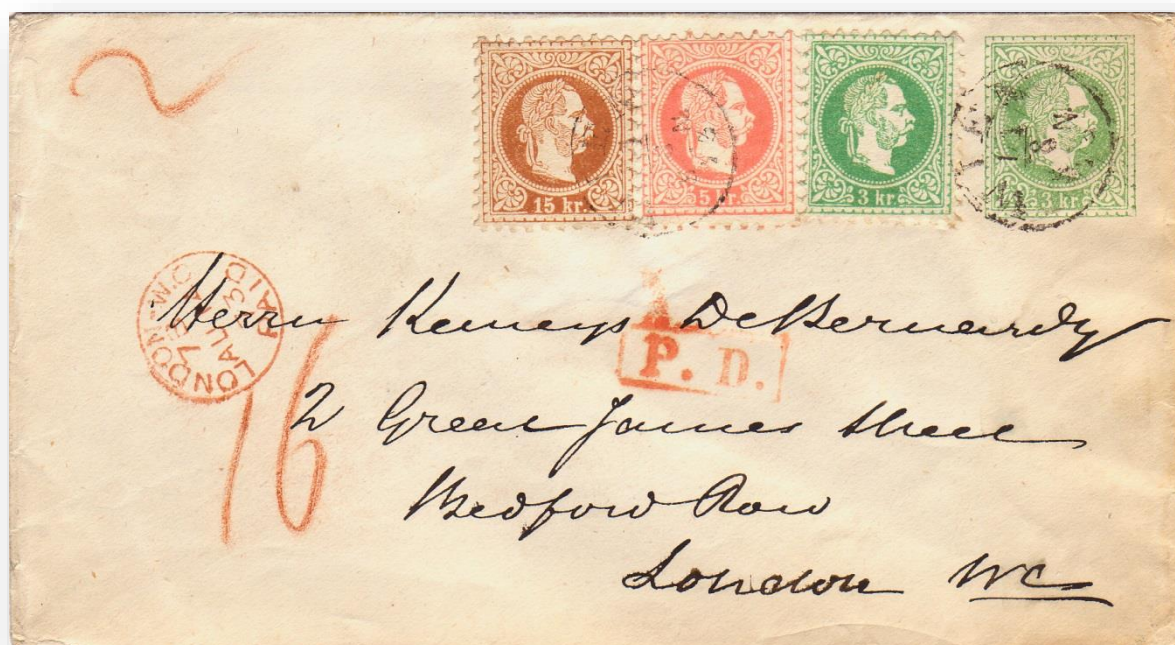 2
15 kr.
5 kr.
3 kr.
3 kr.
LONDON PAID
P. D.
16
Herrn Kemeys DeBernardy
2 Great James Street
Bedford Row
London WC